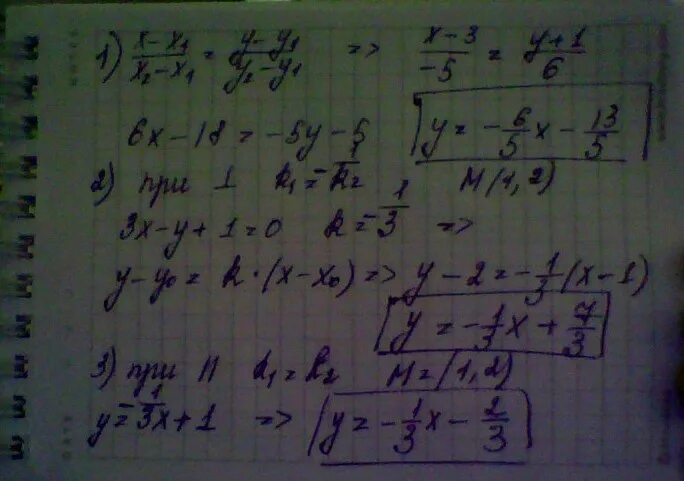 1) (x-x₁)/(x₂-x₁) = (y-y₁)/(y₂-y₁) => (x-3)/(-5) = (y+1)/6
6x-18=-5y-5 y=-6/5x-13/5
2) при ⊥ k₁=-1/k₂ M(1,2)
3x-y+1=0 k=-1/3 =>
y-y₀=k·(x-x₀)=> y-2=-1/3(x-1)
y=-1/3x+7/3
3) при || k₁=k₂ M=(1,2)
y=-1/3x+1 => y=-1/3x-2/3